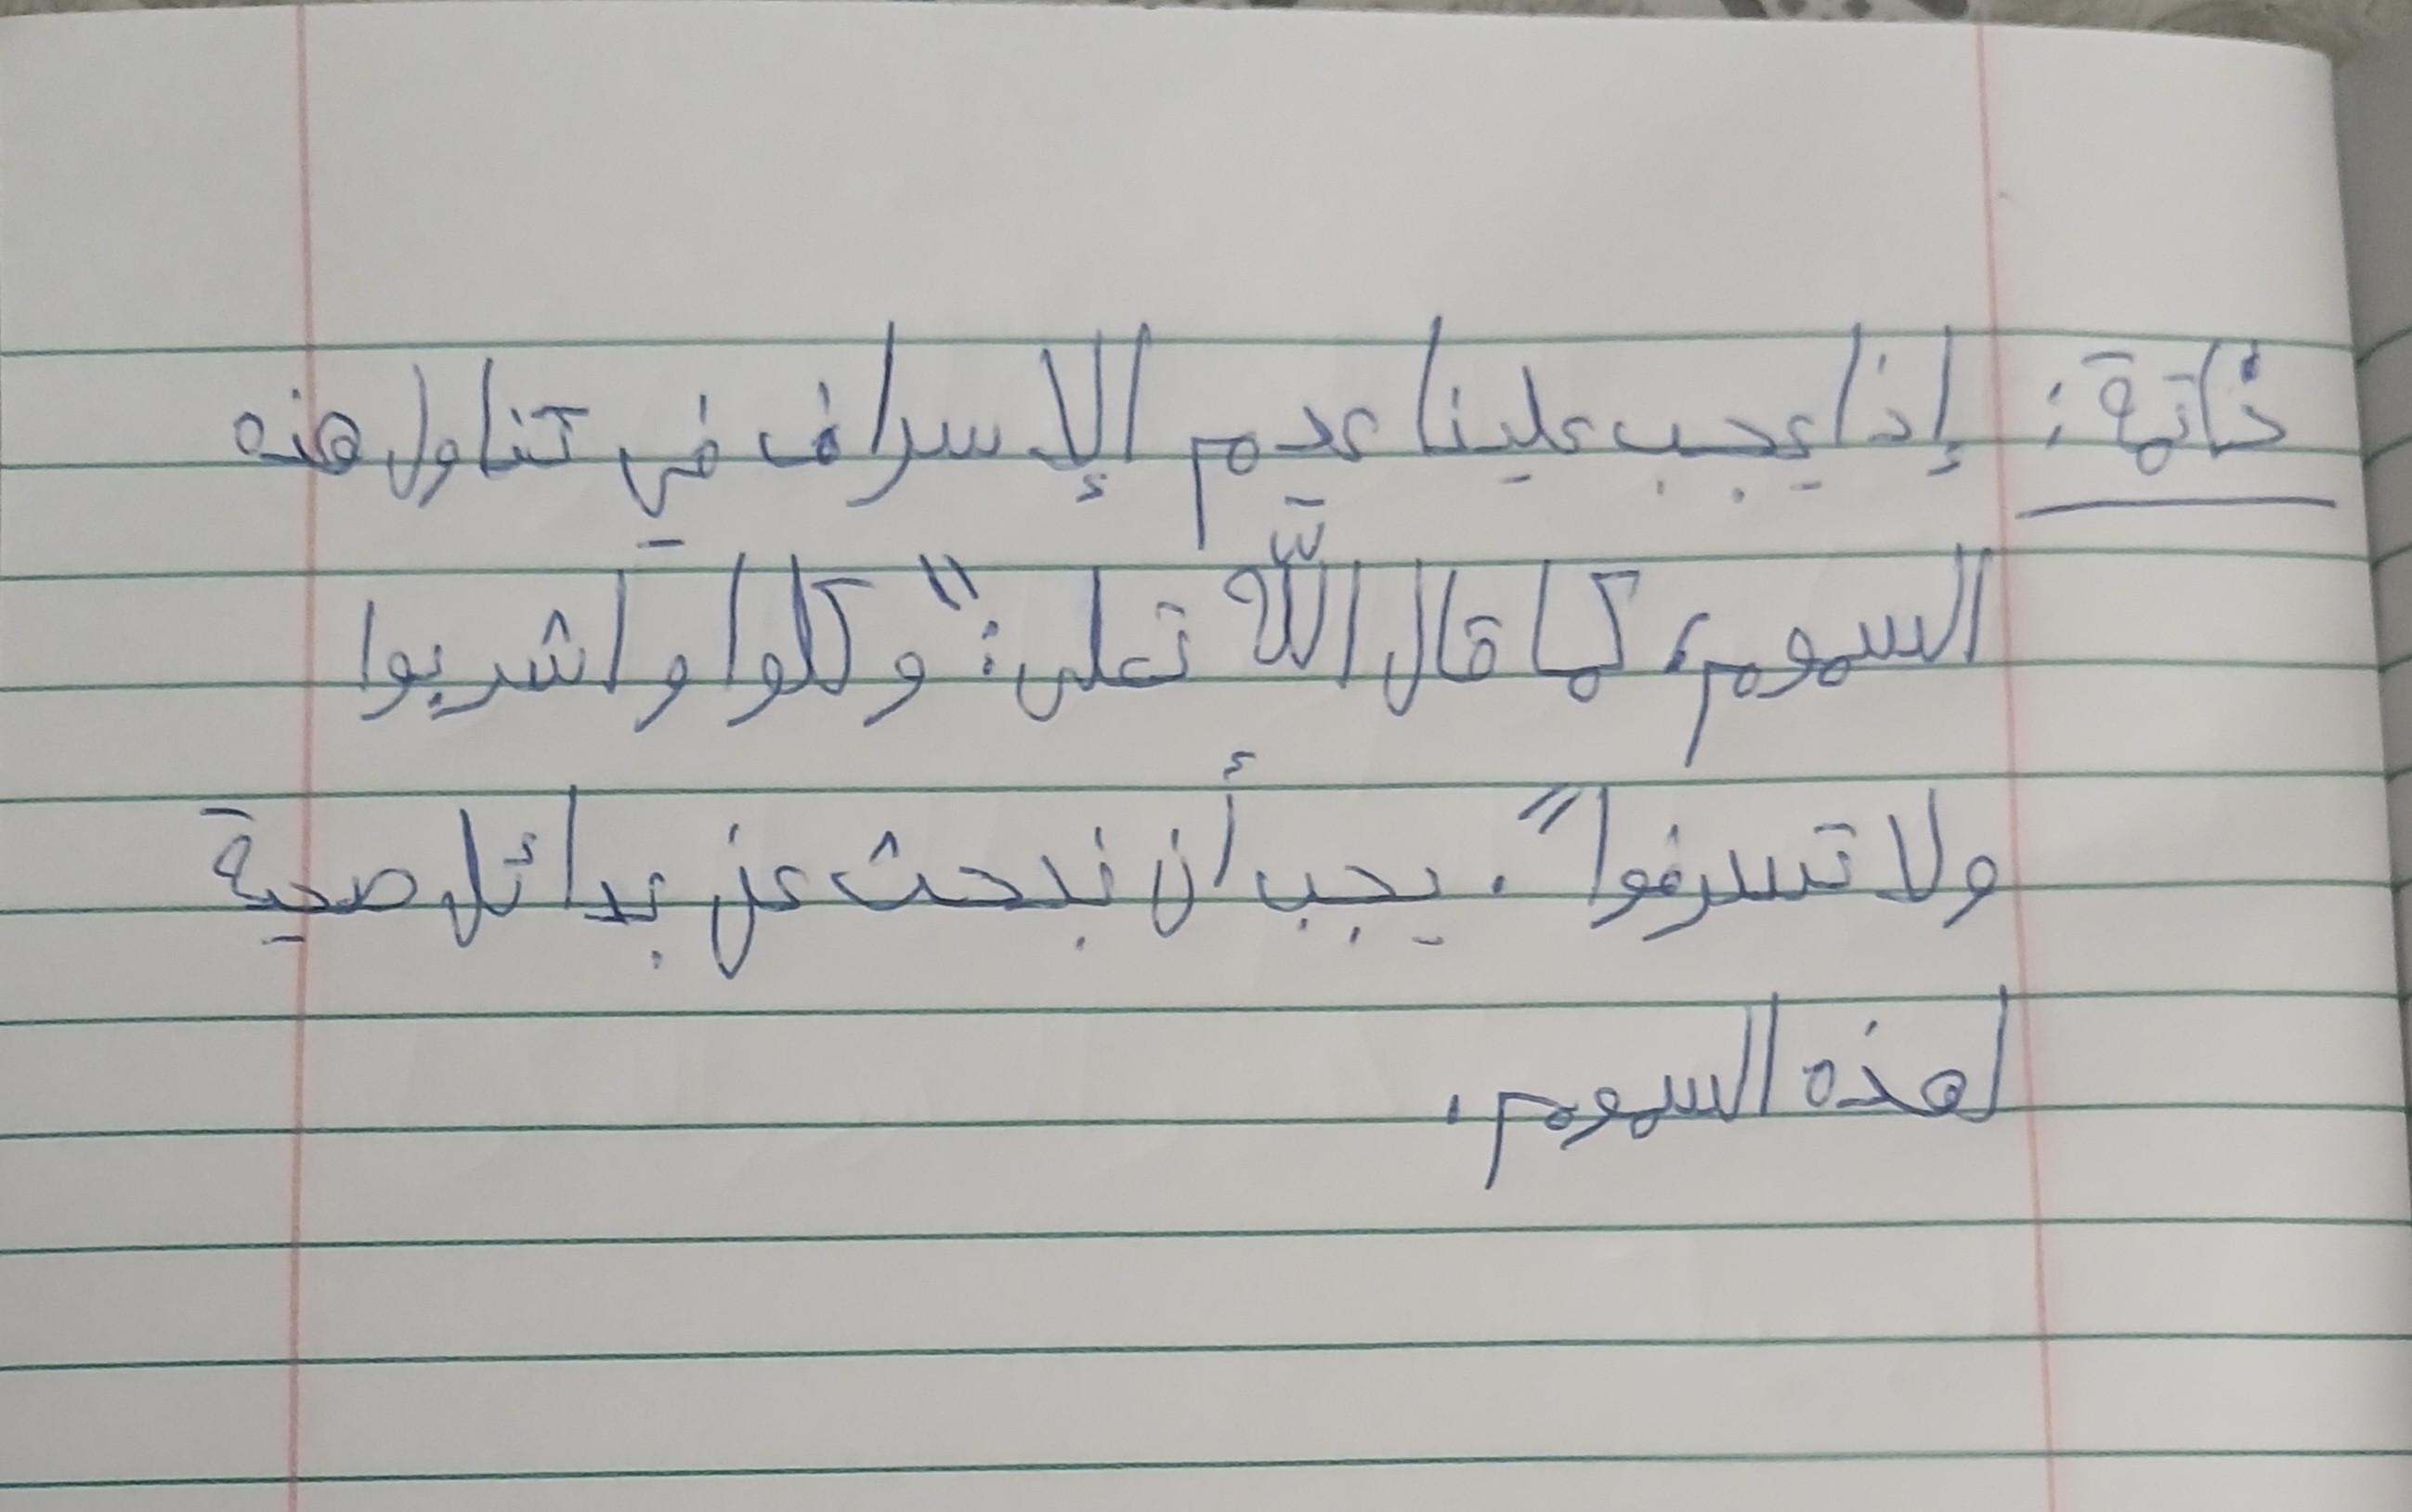 خاتمة: إذا يجب علينا عدم الإسراف في تناول هذه
السموم، كما قال الله تعلى: "وكلوا واشربوا
ولا تسرفوا". يجب أن نبحث عن بدائل صحية
لهذه السموم.